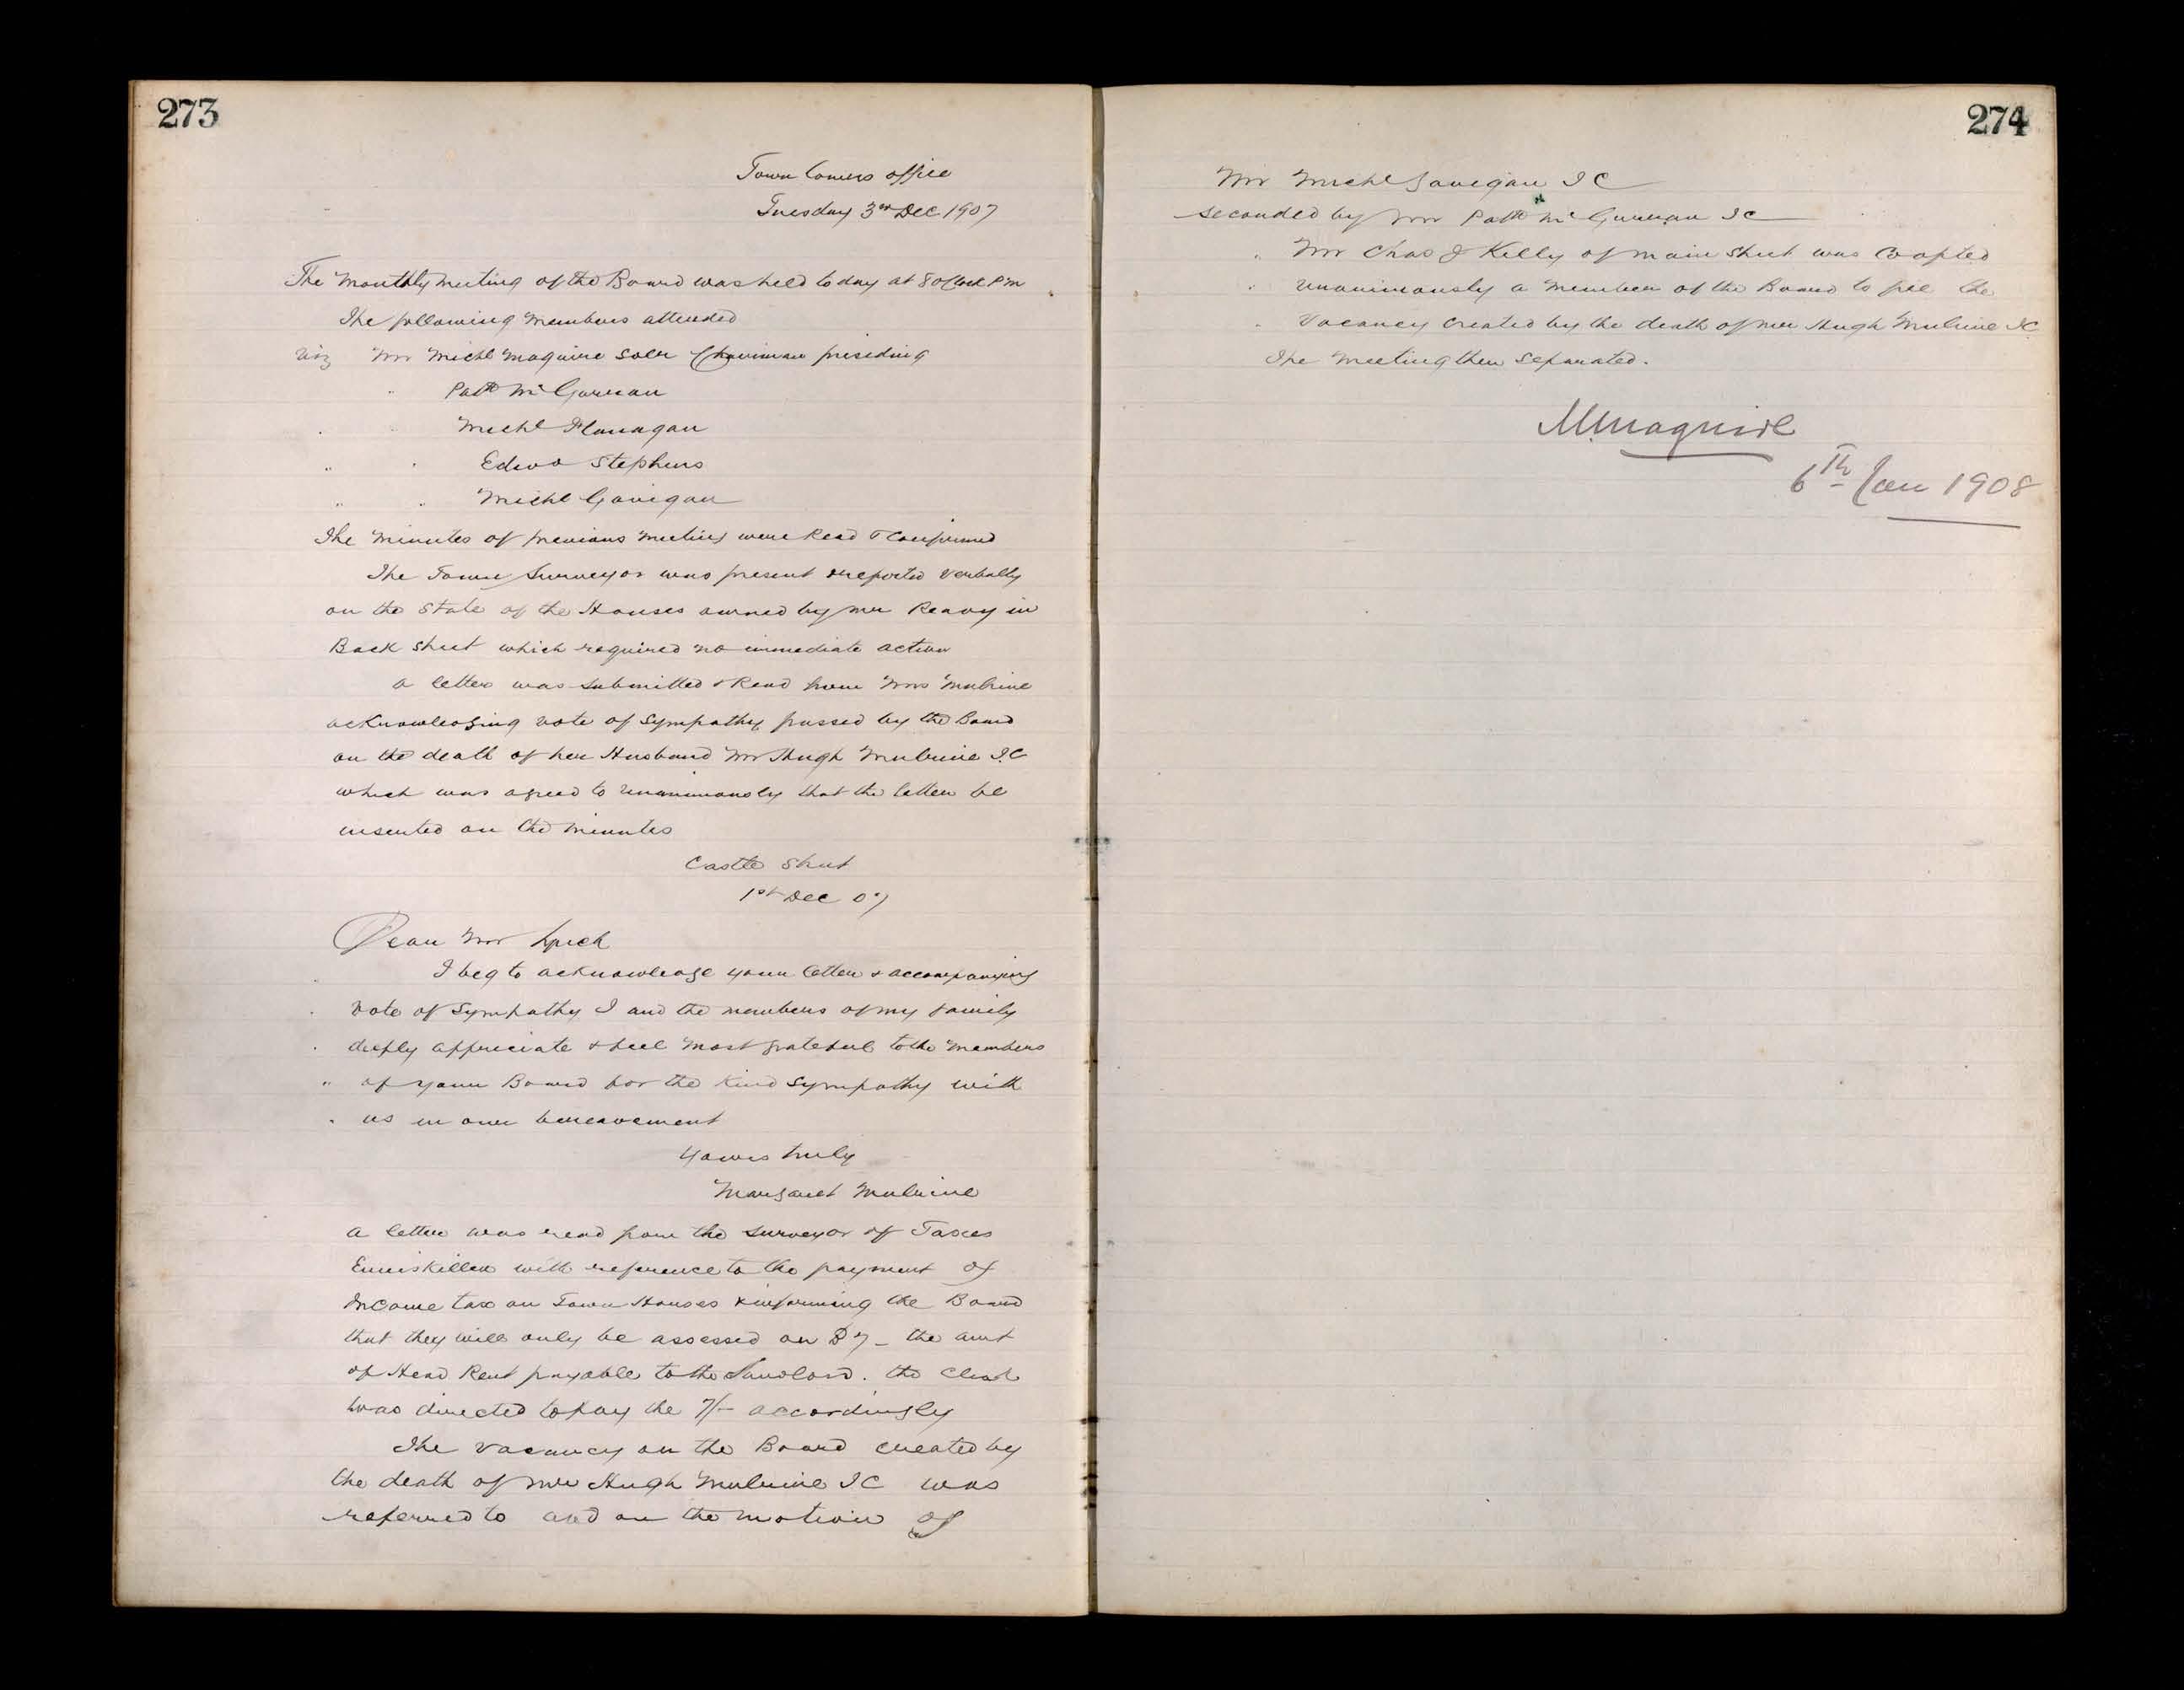 273
Town Comrs office
Tuesday 3rd Dec 1907
The Monthly Meeting of the Board was held to day at 8 oClock P m
The following Members attended
Viz Mr Michl Maguire Solr Chairman presiding
" Patk McGurnan
" " Michl Flanagan
" " Edwd Stephens
" " Michl Gavigan
The Minutes of previous Meeting were Read & Confirmed
The Town Surveyor was present & reported Verbally
on the State of the Houses owned by Mr Reavy in
Back Street which required no immediate action
a letter was submitted & Read from Mrs Mulrine
acknowledging vote of Sympathy passed by the Board
on the death of her Husband Mr Hugh Mulrine T.C
which was agreed to unanimously that the letter be
inserted on the Minutes
Castle Street
1st Dec 07
Dear Mr Lynch
I beg to acknowledge your letter & accompanying
Vote of Sympathy I and the members of my family
deeply appreciate & feel Most grateful to the Members
" of your Board for the Kind Sympathy with
" us in our bereavement
Yours truly
Margaret Mulrine
a letter was read from the Surveyor of Taxes
Enniskillen with reference to the payment of
Income tax on Town Houses & informing the Board
that they will only be assessed on £7 - the amt
of Head Rent payable to the Landlord. the Clerk
was directed to pay the 7/- accordingly
The Vacancy on the Board created by
the death of Mr Hugh Mulrine T C was
referred to and on the motion of
274
Mr Michl Gavigan T C
seconded by Mr Patk McGurnan T C
" Mr Chas J Kelly of Main Street was Coopted
" unanimously a Member of the Board to fill the
" Vacancy created by the death of Mr Hugh Mulrine T C
The Meeting then Separated.
M. Maguire
6th Jan 1908